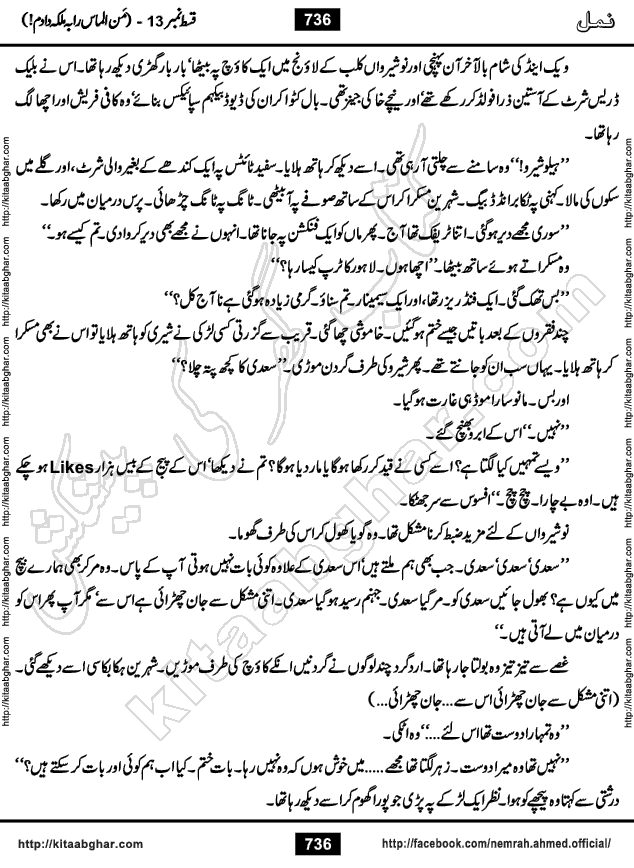 نمل 736 قسط نمبر 13 - (مَن الماس را بہ ملکہ دادم!)
ویک اینڈ کی شام بالآخر آن پہنچی اور نوشیرواں کلب کے لاؤنج میں ایک کاؤچ پہ بیٹھا' بار بار گھڑی دیکھ رہا تھا۔ اس نے بلیک
ڈریس شرٹ کے آستین ذرا فولڈ کر رکھے تھے' اور نیچے خاکی جینز تھی۔ بال کٹوا کر ان کی ڈیوڈ بیکہم سپائیکس بنائے' وہ کافی فریش اور اچھا لگ
رہا تھا۔
''ہیلو شیرو!'' وہ سامنے سے چلتی آ رہی تھی۔ اسے دیکھ کر ہاتھ ہلایا۔ سفید ٹائٹس پہ ایک کندھے کے بغیر والی شرٹ، اور گلے میں
سکوں کی مالا۔ کہنی پہ ٹکا برانڈڈ بیگ۔ شہرین مسکرا کر اس کے ساتھ صوفے پہ آ بیٹھی۔ ٹانگ پہ ٹانگ چڑھائی۔ پرس درمیان میں رکھا۔
''سوری مجھے دیر ہو گئی۔ اتنا ٹریفک تھا آج۔ پھر ماں کو ایک فنکشن پہ جانا تھا۔ انہوں نے مجھے بھی دیر کروا دی۔ تم کیسے ہو۔''
وہ مسکراتے ہوئے ساتھ بیٹھا۔ ''اچھا ہوں۔ لاہور کا ٹرپ کیسا رہا؟''
''بس تھک گئی۔ ایک فنڈ ریزر تھا، اور ایک سیمینار۔ تم سناؤ۔ گرمی زیادہ ہو گئی ہے نا آج کل؟''
چند فقروں کے بعد باتیں جیسے ختم ہو گئیں۔ خاموشی چھا گئی۔ قریب سے گزرتی کسی لڑکی نے شیری کو ہاتھ ہلایا تو اس نے بھی مسکرا
کر ہاتھ ہلایا۔ یہاں سب ان کو جانتے تھے۔ پھر شیرو کی طرف گردن موڑی۔ ''سعدی کا کچھ پتہ چلا؟''
اور بس۔ مانو سارا موڈ ہی غارت ہو گیا۔
''نہیں۔'' اس کے ابرو بھنچ گئے۔
''ویسے تمہیں کیا لگتا ہے؟ اسے کسی نے قید کر رکھا ہو گا یا مار دیا ہو گا؟ تم نے دیکھا' اس کے پیج کے بیس ہزار Likes ہو چکے
ہیں۔ اوہ بے چارا۔ چچ چچ۔'' افسوس سے سر جھٹکا۔
نوشیرواں کے لئے مزید ضبط کرنا مشکل تھا۔ وہ گویا کھول کر اس کی طرف گھوما۔
''سعدی' سعدی' سعدی۔ جب بھی ہم ملتے ہیں' اس سعدی کے علاوہ کوئی بات نہیں ہوتی آپ کے پاس۔ وہ مر کر بھی ہمارے بیچ
میں کیوں ہے؟ بھول جائیں سعدی کو۔ مر گیا سعدی۔ جہنم رسید ہو گیا سعدی۔ اتنی مشکل سے جان چھڑائی ہے اس سے' مگر آپ پھر اس کو
درمیان میں لے آتی ہیں۔''
غصے سے تیز تیز وہ بولتا جا رہا تھا۔ ارد گرد چند لوگوں نے گردنیں انکے کاؤچ کی طرف موڑیں۔ شہرین ہکا بکا سی اسے دیکھے گئی۔
(اتنی مشکل سے جان چھڑائی اس سے... جان چھڑائی...)
''وہ تمہارا دوست تھا اس لئے....'' وہ اٹکی۔
''نہیں تھا وہ میرا دوست۔ زہر لگتا تھا مجھے..... میں خوش ہوں کہ وہ نہیں رہا۔ بات ختم۔ کیا اب ہم کوئی اور بات کر سکتے ہیں؟''
درشتی سے کہتا وہ پیچھے کو ہوا۔ نظر ایک لڑکے پہ پڑی جو پورا گھوم کر اسے دیکھ رہا تھا۔
http://kitaabghar.com 736 http://facebook.com/nemrah.ahmed.official/
http://kitaabghar.com http://kitaabghar.com http://kitaabghar.com http://kitaabghar.com http://kitaabghar.com http://kitaabghar.com
http://kitaabghar.com http://kitaabghar.com http://kitaabghar.com http://kitaabghar.com http://kitaabghar.com http://kitaabghar.com
کتاب گھر کی پیشکش
kitaabghar.com